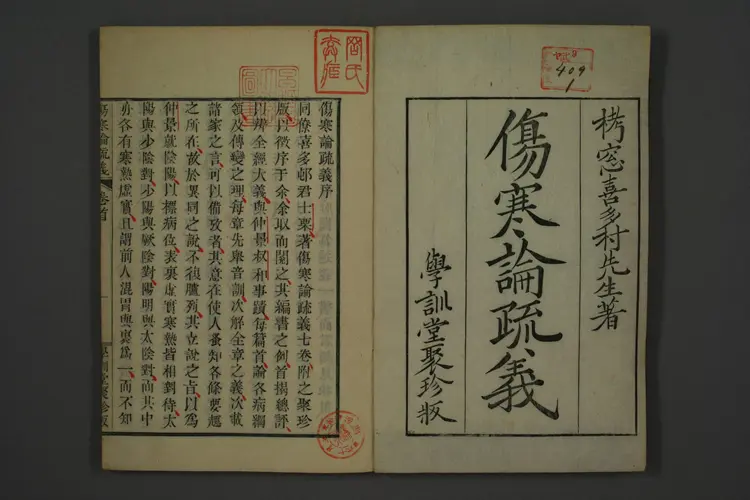 栲窓喜多村先生著
傷寒論疏義
學訓堂聚珍版
傷寒論疏義序
同僚喜多邨君士栗著傷寒論疏義七卷附之聚珍
版以徵序于余余取而閱之其編書之例首揭總評
以辨全經大義與仲景叔和事蹟每篇首論各病獨
領及傳變之理每章先眾音訓次解全章之義次載
諸家之言可以備攷者其意在使人蚤知各條要趣
之所在故於異同之說不復臚列其立說之旨以為
仲景就陰陽以標病位表裏虛實寒熱皆相對待太
陽與少陰對少陽與厥陰對陽明與太陰對而其中
亦各有寒熱虛實且謂前人混胃與裏為一而不知
傷寒論疏義
卷首
一
學訓堂聚珍版
409
1